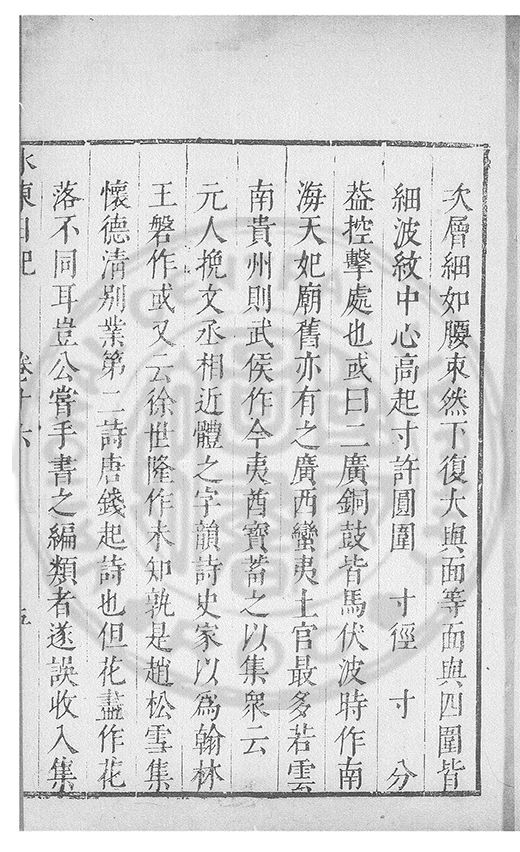 次層細如腰束然下復大與面等面與四圍皆
細波紋中心高起寸許圓圍　寸徑　寸　分
葢控擊處也或曰二廣銅鼓皆馬伏波時作南
海天妃廟舊亦有之廣西蠻夷土官最多若雲
南貴州則武侯作今夷酋寳蓄之以集衆云
元人挽文丞相近體之字韻詩史家以爲翰林
王磐作或又云徐世隆作未知孰是趙松雪集
懷德清别業第二詩唐錢起詩也但花盡作花
落不同耳豈公嘗手書之編類者遂誤收入集
水東日記　卷十六　五